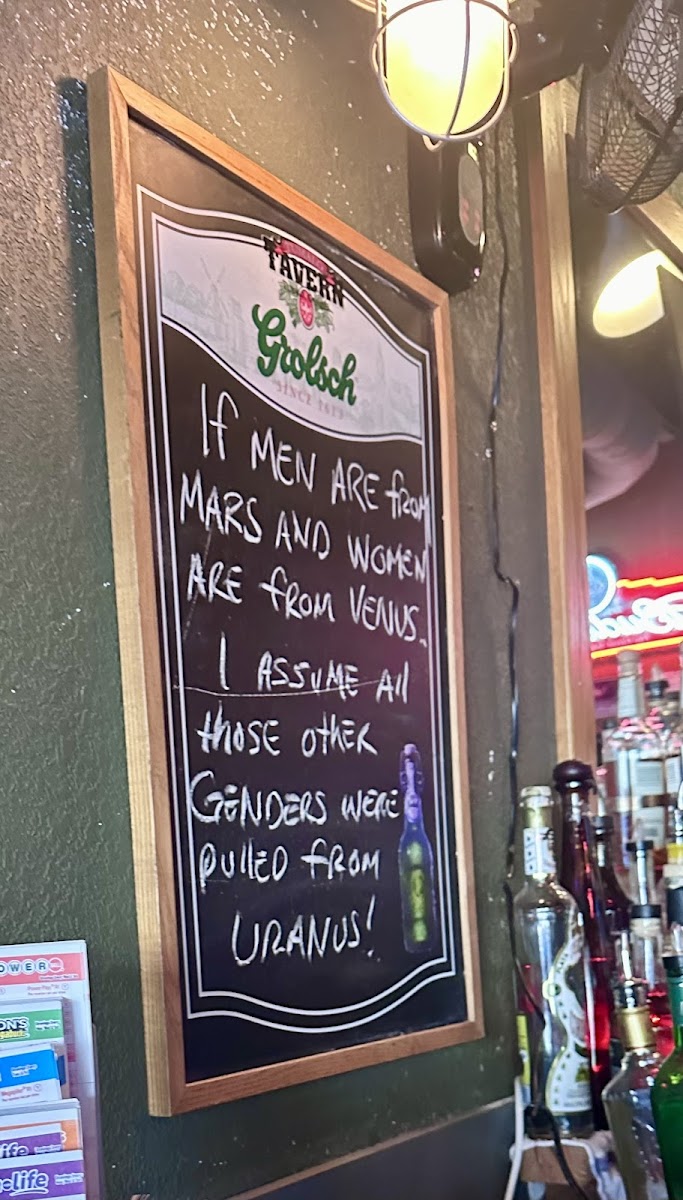 TAVERN
Grolsch
SINCE 1615
If MEN ARE from
MARS AND WOMEN
ARE from VENUS..
I ASSUME All
those other
GENDERS WERE
pulled from
URANUS!
OWER
Power Play
ON'S
Megaplier
ife
life